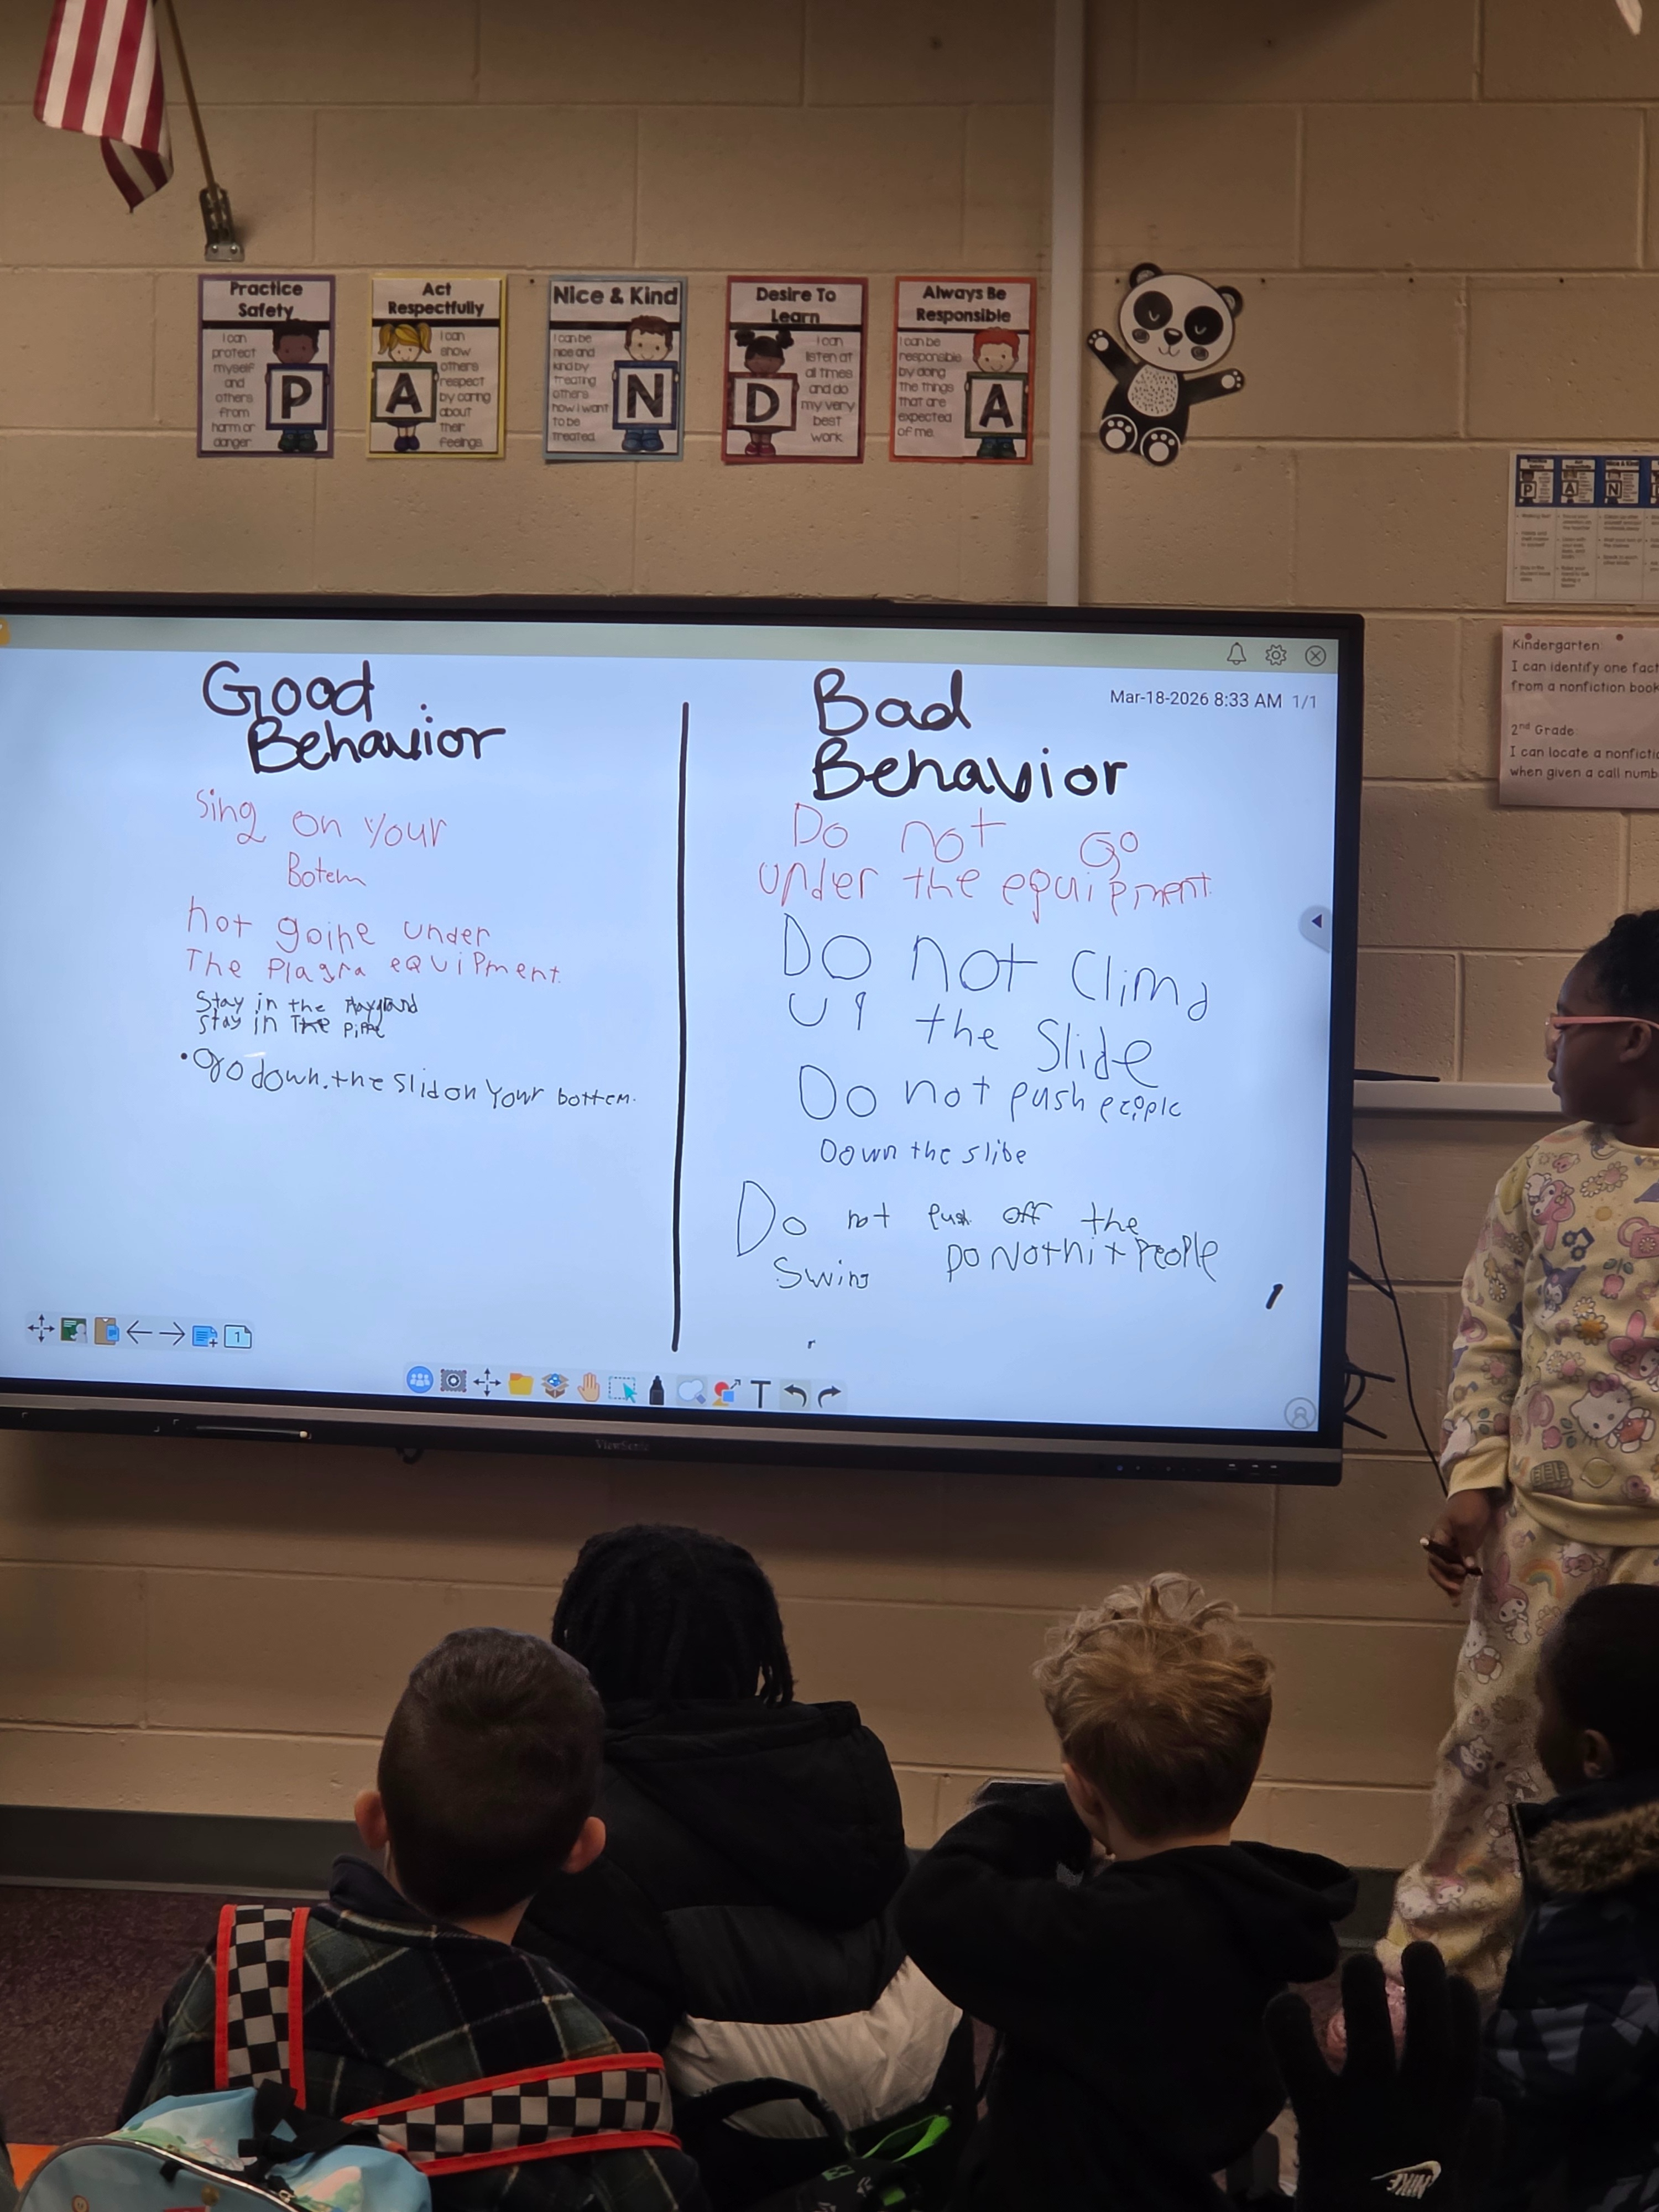 Practice
Safety
I can
protect
myself
and
others
from
harm or
danger.
P
Act
Respectfully
I can
show
others
respect
by caring
about
their
feelings.
A
Nice & Kind
I can be
nice and
kind by
treating
others
how I want
to be
treated.
N
Desire To
Learn
I can
listen at
all times
and do
my very
best
work.
D
Always Be
Responsible
I can be
responsible
by doing
the things
that are
expected
of me.
A
P A N
Kindergarten:
I can identify one fact
from a nonfiction book
2nd Grade:
I can locate a nonfictio
when given a call numb
Mar-18-2026 8:33 AM 1/1
Good
Behavior
Sing on your
Botem
not goine under
The Plagra equipment.
Stay in the Playground
Stay in The
• go down. the slid on your bottem.
Bad
Behavior
Do not Go
under the equipment.
Do not Clim
the Slide
Do not push people
Down the slibe
Do not push off the
Swing
Do Not hit People
1
T
ViewSonic
NIKE